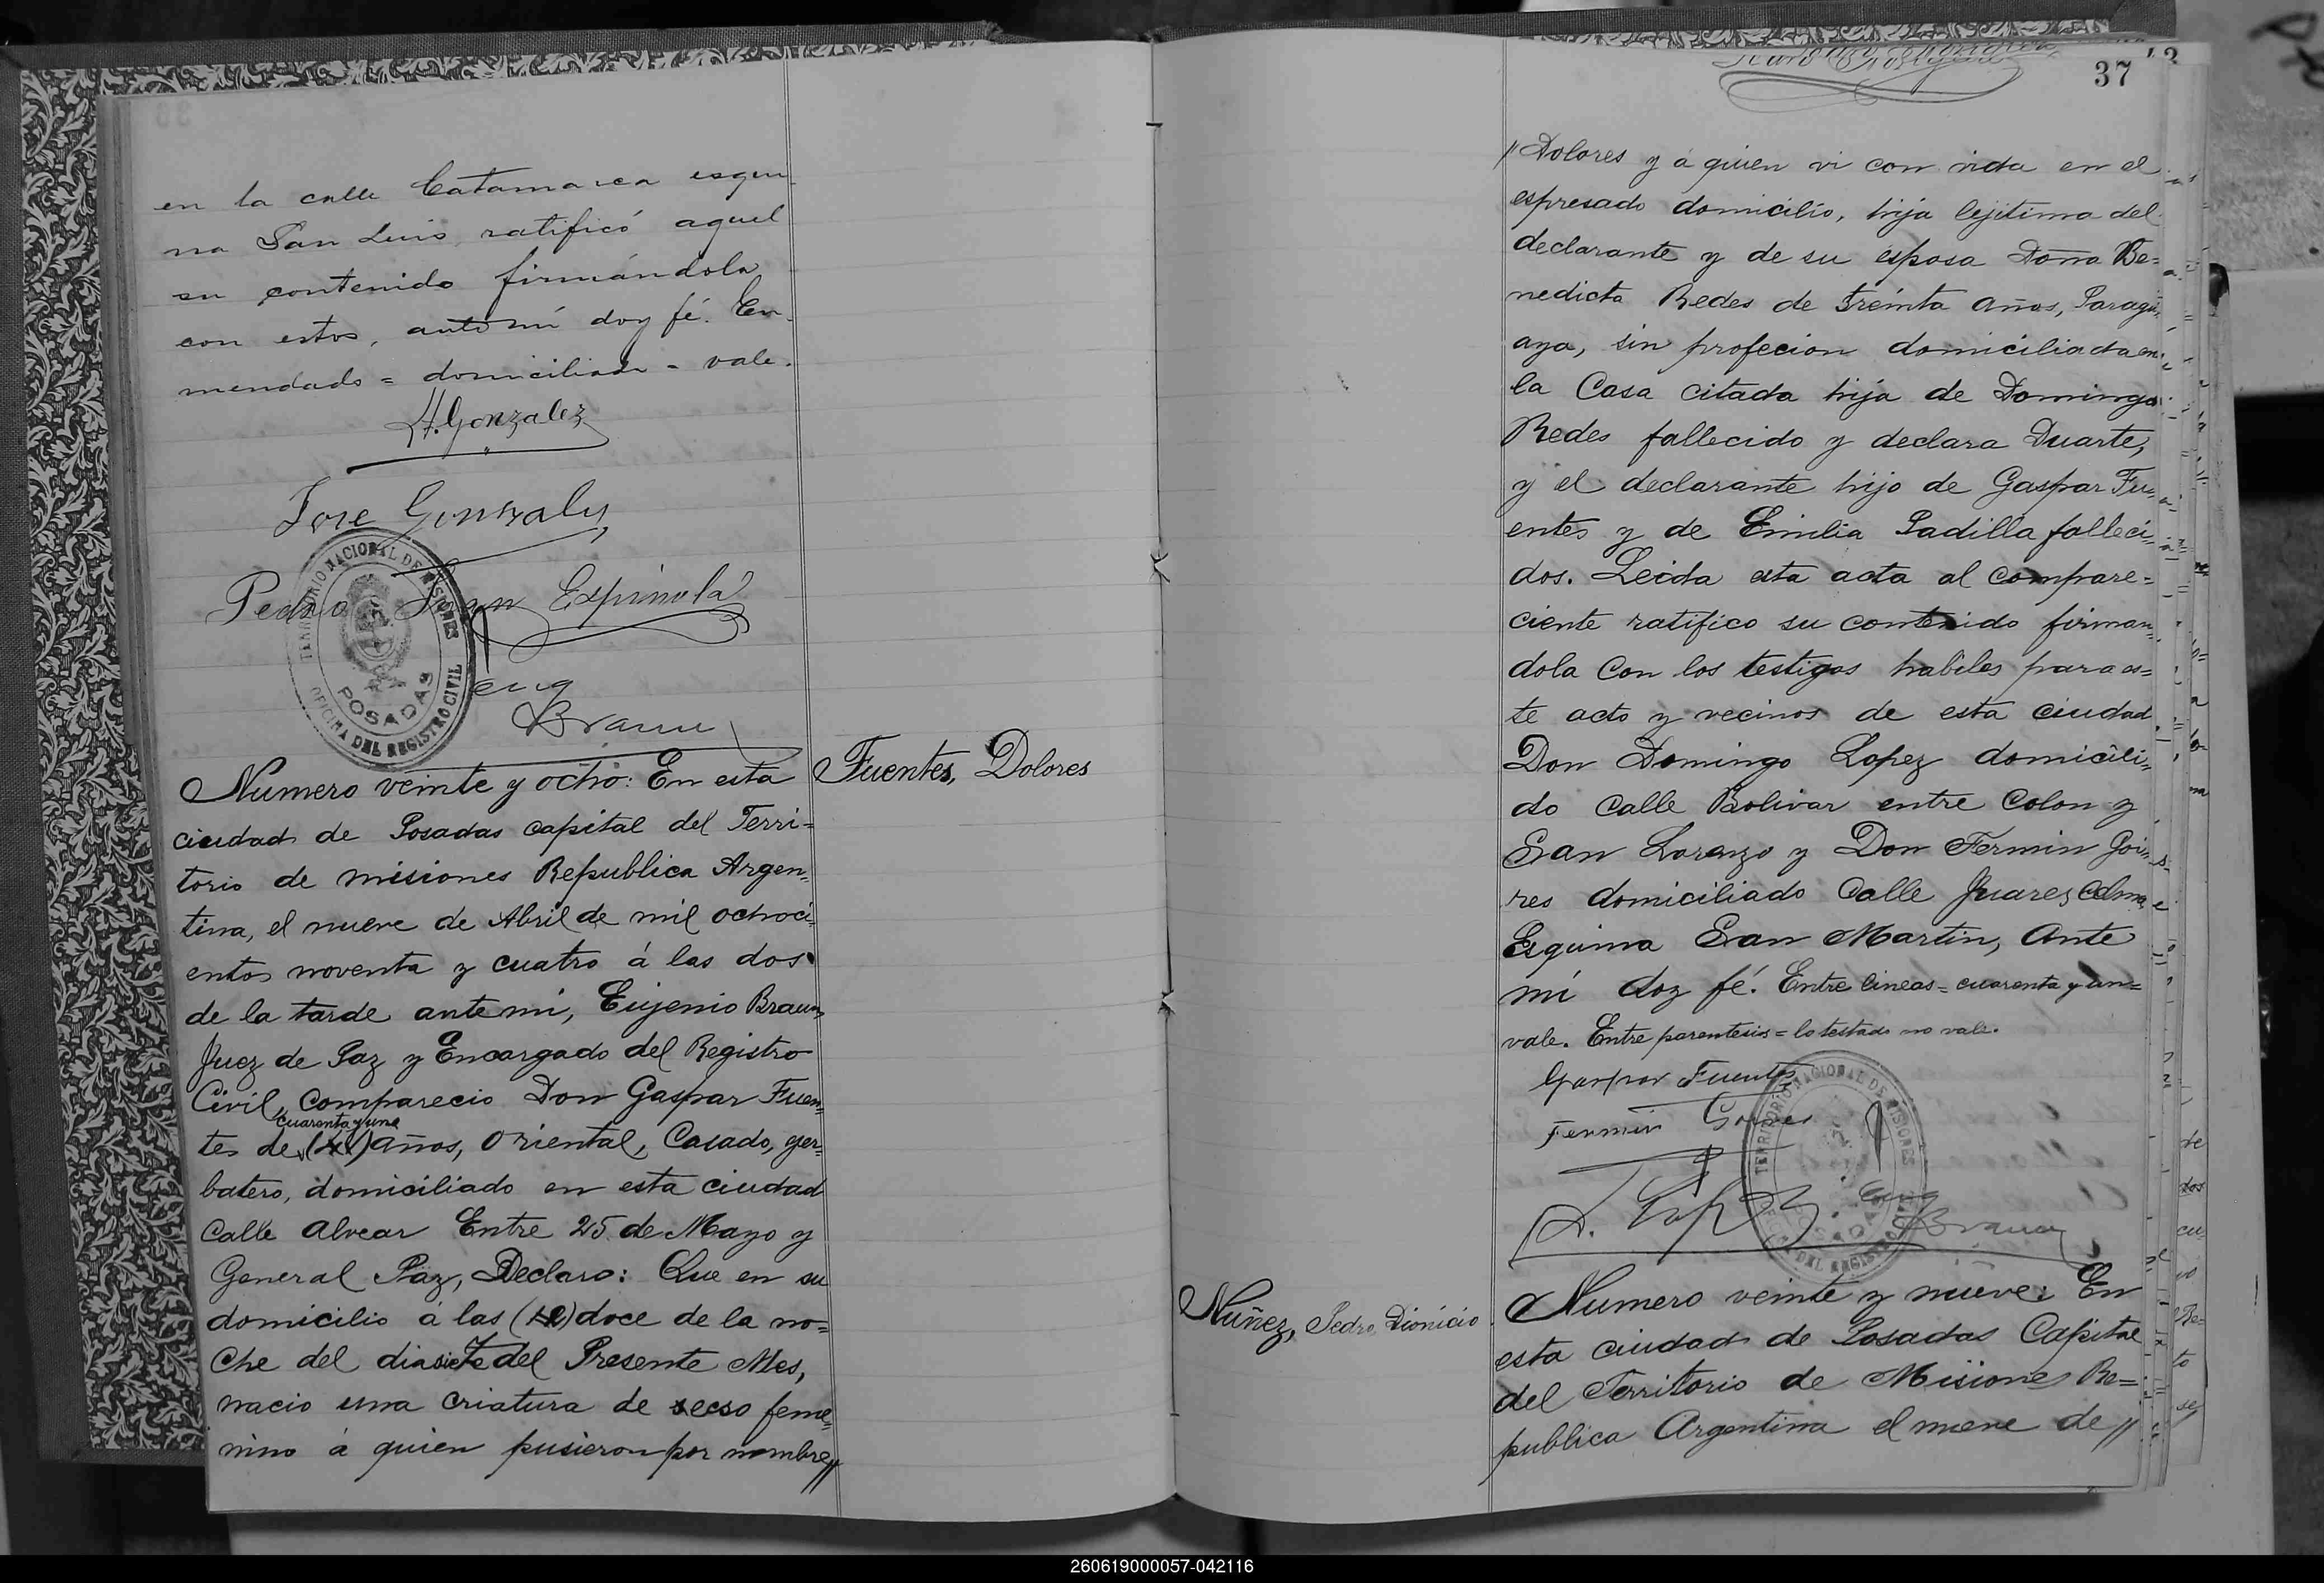 en la calle Catamarca esqui-
na San Luis, ratificó aquel
su contenido firmándola
con estos, ante mi doy fé. En-
mendado = domiciliado = vale.
H. Gonzalez
Jose Gonzales
Pedro Juan Espinola
TERRITORIO NACIONAL DE MISIONES
POSADAS
OFICINA DEL REGISTRO CIVIL
Eug
Braun
Fuentes, Dolores
Numero veinte y ocho: En esta
ciudad de Posadas capital del Terri=
torio de misiones Republica Argen=
tina, el nueve de Abril de mil ochoci=
entos noventa y cuatro á las dos
de la tarde ante mi, Eujenio Braun,
Juez de Paz y Encargado del Registro
Civil, Comparecio Don Gaspar Fuen=
cuarenta y un
tes de (41) años, Oriental, Casado, yer=
batero, domiciliado en esta ciudad
Calle Alvear Entre 25 de Mayo y
General Paz, Declaro: Que en su
domicilio á las (12) doce de la no=
che del dia siete del Presente Mes,
nacio una criatura de secso feme=
nino á quien pusieron por nombre//
37
//Dolores y á quien vi con vida en el
espresado domicilio, hija lejitima del
declarante y de su esposa Doña Be=
nedicta Redes de treinta años, Paragu=
aya, sin profecion domiciliada en
la Casa citada hija de Domingo
Redes fallecido y declara Duarte,
y el declarante hijo de Gaspar Fu=
entes y de Emilia Padilla falleci=
dos. Leida esta acta al compare=
ciente ratifico su contenido firman=
dola Con los testigos habiles para es=
te acto y vecinos de esta ciudad
Don Domingo Lopez domicili=
do Calle Bolivar entre Colon y
San Lorenzo y Don Fermin Goi=
res domiciliado Calle Juares Celman
Esquina San Martin, Ante
mi doy fé. Entre lineas = cuarenta y un =
vale. Entre parentesis = lo testado no vale.
Gaspar Fuentes
Fermin Goires
D. Lopez
TERRITORIO NACIONAL DE MISIONES
POSADAS
OFICINA DEL REGISTRO CIVIL
Eug
Braun
Nuñez, Pedro Dionicio
Numero veinte y nueve: En
esta ciudad de Posadas Capital
del Territorio de Misiones Re=
publica Argentina el nueve de//
260619000057-042116